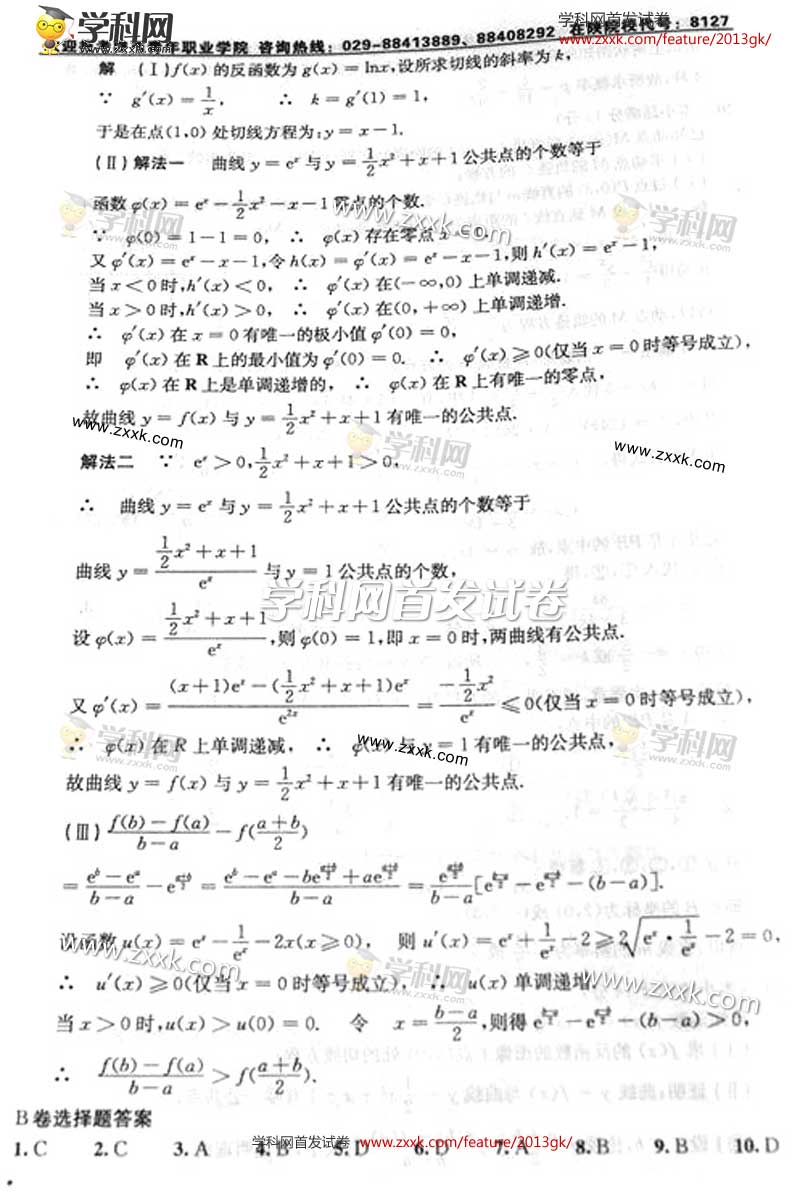 学科网首发试卷 www.zxxk.com/feature/2013gk/
年职业学院 咨询热线：029-88413889、88408292 在陕院校代号：8127
解 (Ⅰ)f(x)的反函数为g(x)=lnx,设所求切线的斜率为k,
∵ g′(x)=1/x, ∴ k=g′(1)=1,
于是在点(1,0)处切线方程为:y=x-1.
(Ⅱ)解法一 曲线y=eˣ与y=1/2x²+x+1公共点的个数等于
函数φ(x)=eˣ-1/2x²-x-1零点的个数.
∵ φ(0)=1-1=0, ∴ φ(x)存在零点x
又φ′(x)=eˣ-x-1,令h(x)=φ′(x)=eˣ-x-1,则h′(x)=eˣ-1,
当x<0时,h′(x)<0, ∴ φ′(x)在(-∞,0)上单调递减.
当x>0时,h′(x)>0, ∴ φ′(x)在(0,+∞)上单调递增.
∴ φ′(x)在x=0有唯一的极小值φ′(0)=0,
即 φ′(x)在R上的最小值为φ′(0)=0. ∴ φ′(x)≥0(仅当x=0时等号成立),
∴ φ(x)在R上是单调递增的, ∴ φ(x)在R上有唯一的零点,
故曲线y=f(x)与y=1/2x²+x+1有唯一的公共点.
解法二 ∵ eˣ>0,1/2x²+x+1>0,
∴ 曲线y=eˣ与y=1/2x²+x+1公共点的个数等于
曲线y=(1/2x²+x+1)/eˣ与y=1公共点的个数,
设φ(x)=(1/2x²+x+1)/eˣ,则φ(0)=1,即x=0时,两曲线有公共点.
又φ′(x)=((x+1)eˣ-(1/2x²+x+1)eˣ)/e²ˣ=(-1/2x²)/eˣ≤0(仅当x=0时等号成立),
∴ φ(x)在R上单调递减, ∴ φ(x)与y=1有唯一的公共点,
故曲线y=f(x)与y=1/2x²+x+1有唯一的公共点.
(Ⅲ)(f(b)-f(a))/(b-a)-f((a+b)/2)
=(e^b-e^a)/(b-a)-e^((a+b)/2)=(e^b-e^a-be^((a+b)/2)+ae^((a+b)/2))/(b-a)=e^((a+b)/2)/(b-a)[e^((b-a)/2)-e^((a-b)/2)-(b-a)].
设函数u(x)=eˣ-1/eˣ-2x(x≥0), 则u′(x)=eˣ+1/eˣ-2≥2√(eˣ·1/eˣ)-2=0,
∴ u′(x)≥0(仅当x=0时等号成立), ∴ u(x)单调递增.
当x>0时,u(x)>u(0)=0. 令 x=(b-a)/2,则得e^((b-a)/2)-e^((a-b)/2)-(b-a)>0,
∴ (f(b)-f(a))/(b-a)>f((a+b)/2).
B卷选择题答案
1.C 2.C 3.A 4.B 5.D 6.D 7.A 8.B 9.B 10.D
学科网首发试卷 www.zxxk.com/feature/2013gk/
学科网首发试卷
学科网
zxxk.com
www.zxxk.com